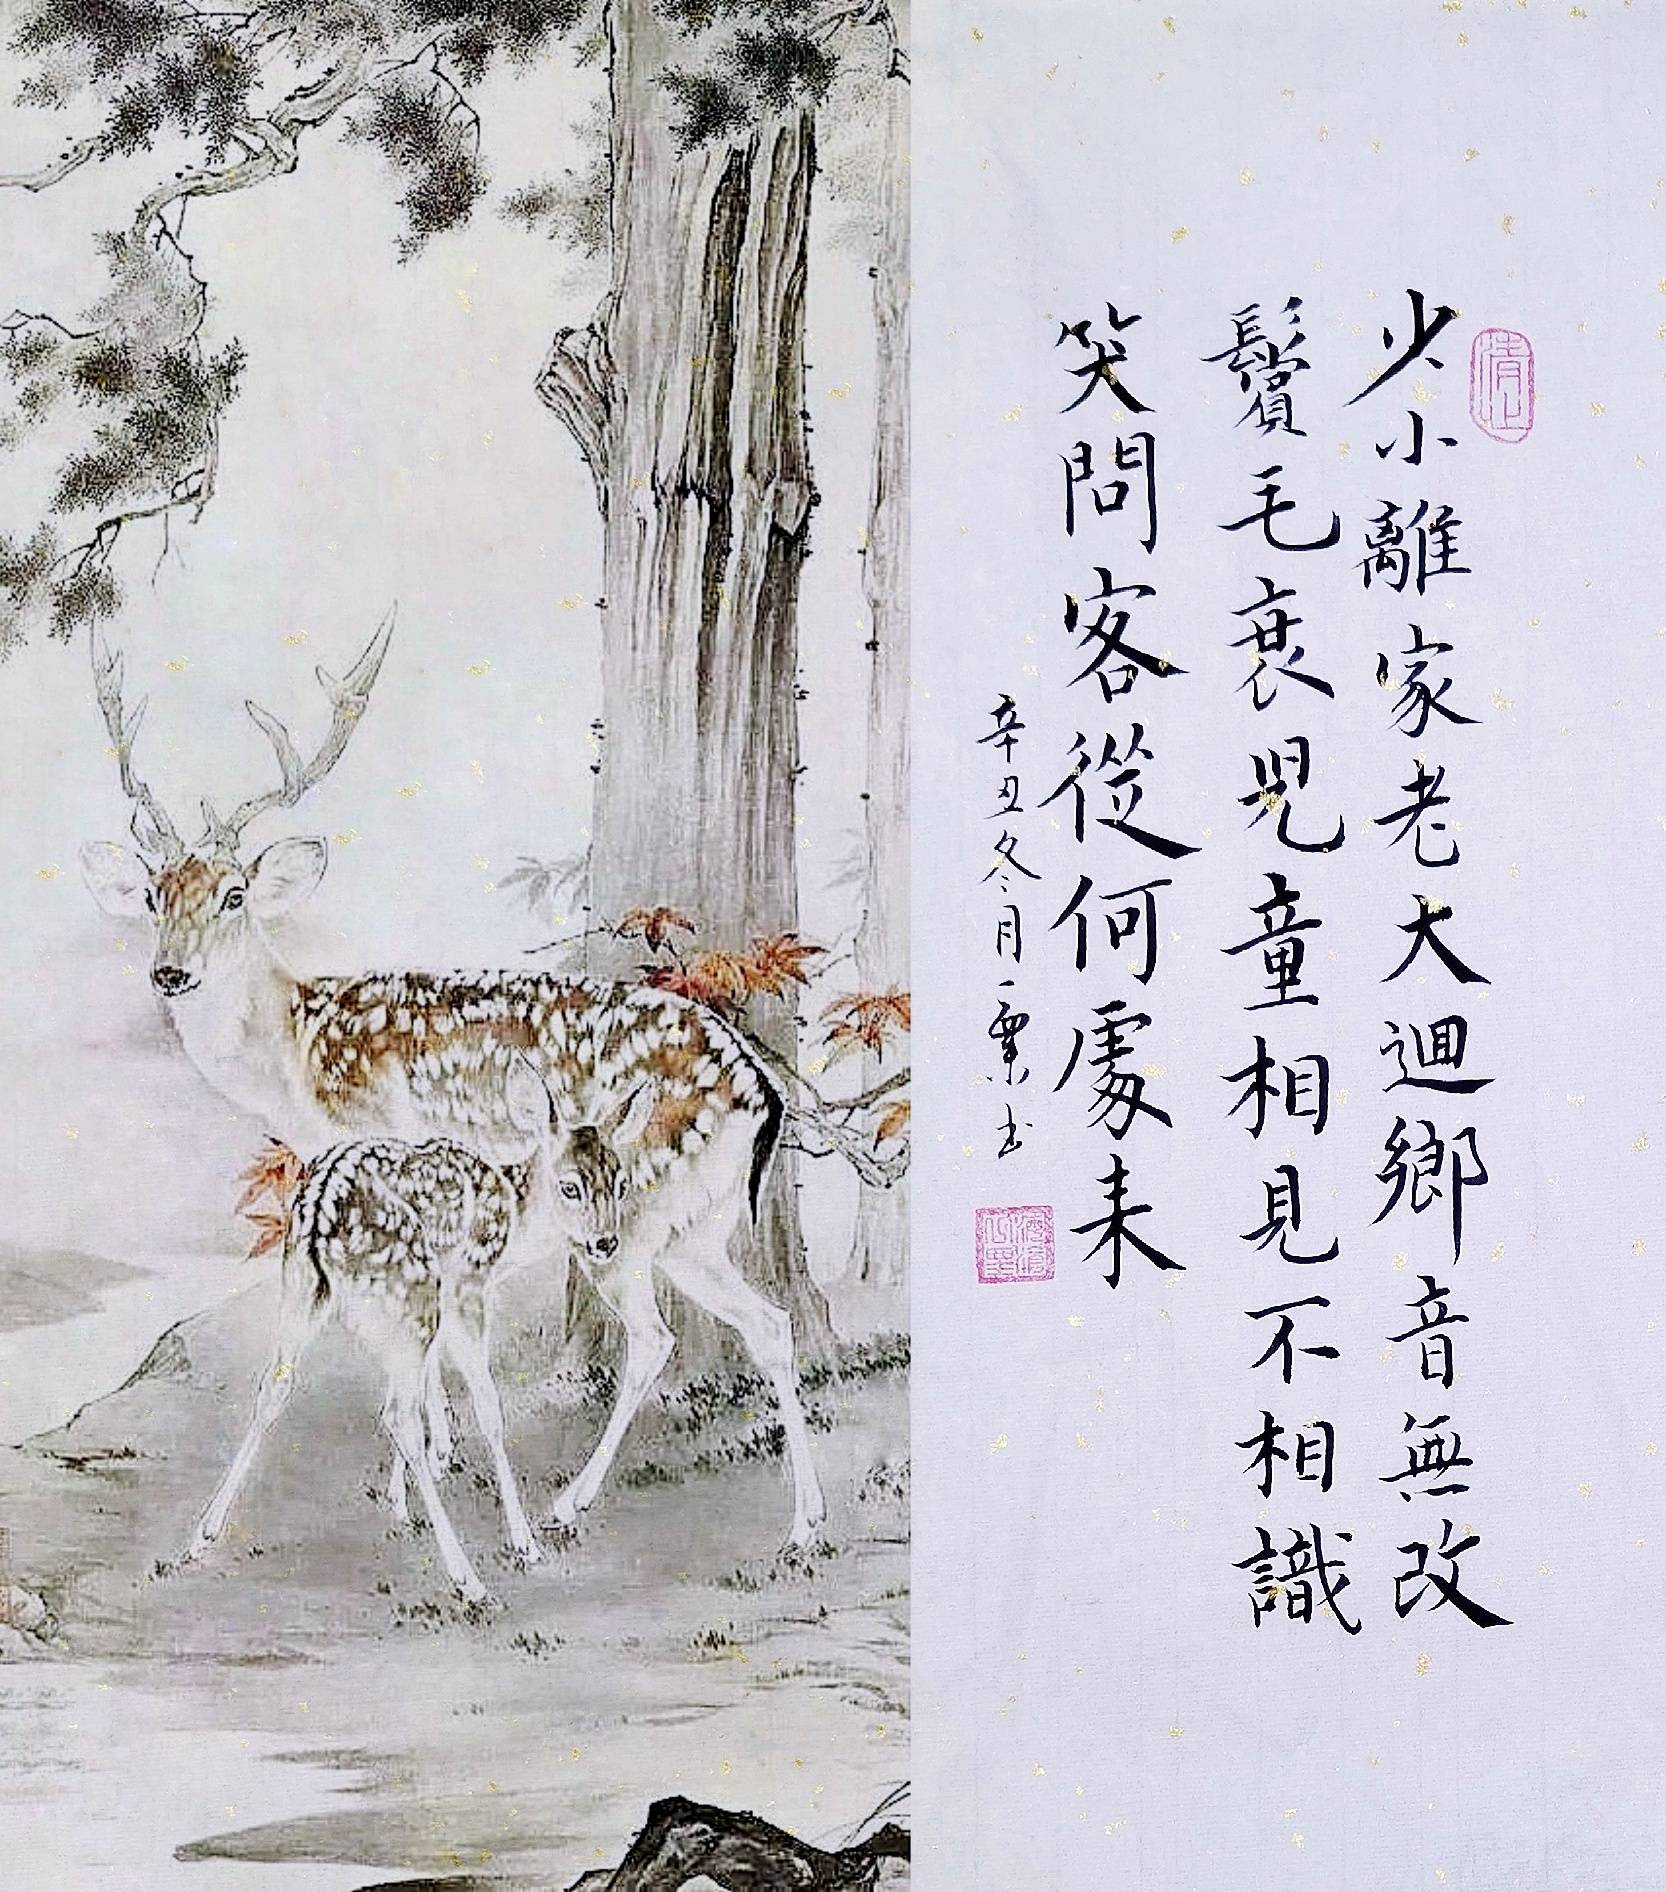 少小離家老大迴鄉音無改
鬢毛衰児童相見不相識
笑問客從何處来
辛丑冬月一粟书